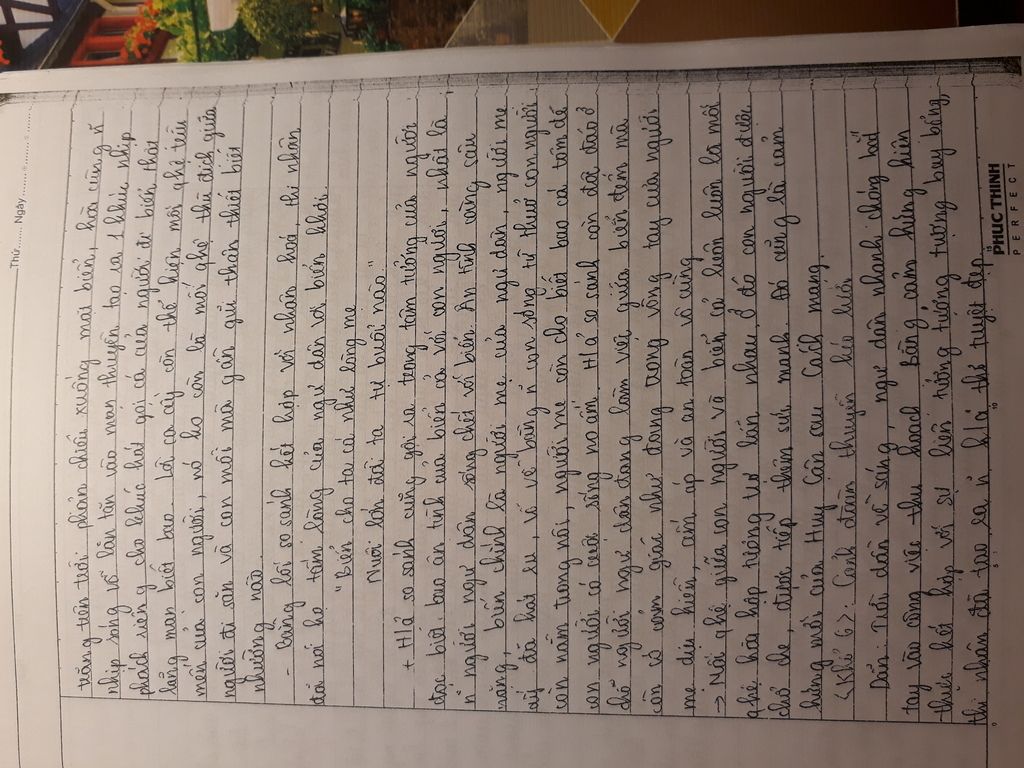 Thứ ....... Ngày ................
trăng trên trời phản chiếu xuống mai biển, hòa cùng n̄
nhịp sóng vỗ lăn tăn vào man thuyền tạo ra 1 khúc nhịp
phách riêng cho khúc hát gọi cá của người đi biển thật
lãng mạn biết bao. Lời ca ấy còn thể hiện mối qhệ trìu
mến của con người, nó ko còn là mối qhệ thù địch giữa
người đi săn và con mồi mà gần gũi thân thiết biết
nhường nào.
- Bằng lối so sánh kết hợp với nhân hoá, thi nhân
đã nói hộ tấm lòng của ngư dân với biển khơi.
"Biển cho ta cá như lòng mẹ
Nuôi lớn đời ta tự buổi nào."
+ H/á so sánh cũng gợi ra trong tâm tưởng của người
đọc biết bao ân tình của biển cả với con người, nhất là
n̄ người ngư dân sống chết với biển. Ân tình nặng sâu
năng, biển chính là người mẹ của ngư dân, người mẹ
ấy đã hát ru, vỗ về bằng n̄ con sóng từ thuở con người
còn nằm trong nôi, người mẹ còn cho biết bao cá tôm để
con người có cuộc sống no ấm. H/á so sánh còn độc đáo ở
chỗ người ngư dân đang làm việc giữa biển đêm mà
còn có cảm giác như đang trong vòng tay của người
mẹ dịu hiền, ấm áp và an toàn vô cùng.
-> Mối qhệ giữa con người và biển cả luôn luôn là mối
qhệ hài hòa tương tự lẫn nhau, ở đó con người được
chở che, được tiếp thêm sức mạnh. Đó cũng là cảm
hứng mới của Huy Cận sau Cách mạng.
<Khổ 6>: Cảnh đoàn thuyền kéo lưới
Dẫn: Trời dần về sáng, ngư dân nhanh chóng bắt
tay vào công việc thu hoạch. Bằng cảm hứng hiện
thực kết hợp với sự liên tưởng tưởng tượng bay bổng,
thi nhân đã tạo ra n̄ h/á thơ tuyệt đẹp.
0 5 10
PHÚC THỊNH
PERFECT